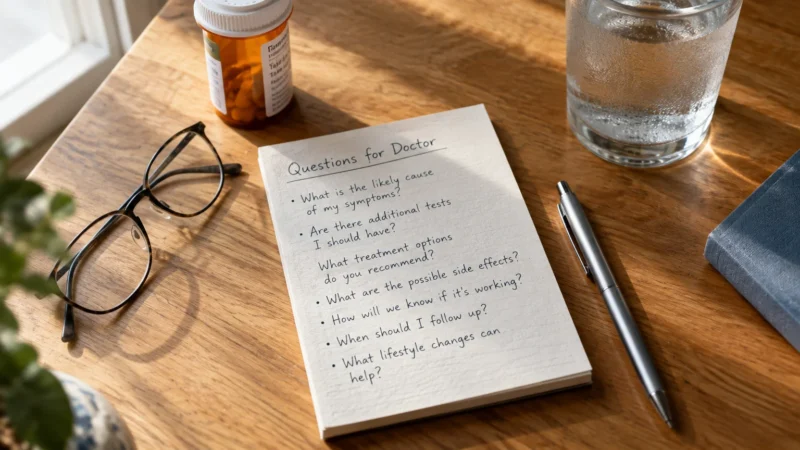 Questions for Doctor
• What is the likely cause
of my symptoms?
• Are there additional tests
I should have?
What treatment options
do you recommend?
• What are the possible side effects?
• How will we know if it's working?
• When should I follow up?
• What lifestyle changes can
help?